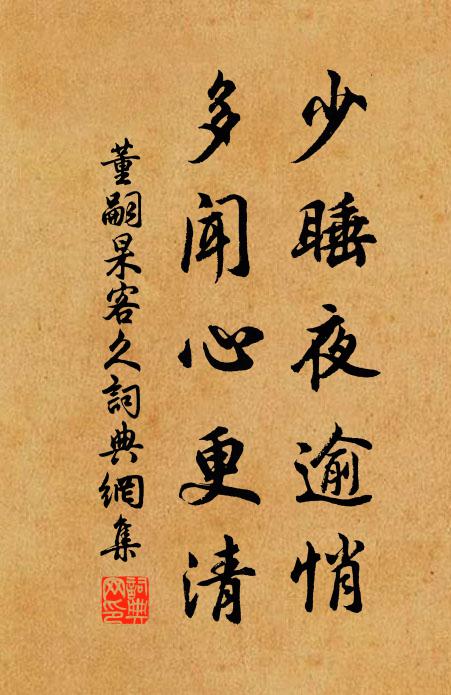 少睡夜逾悄
多聞心更清
董嗣杲客久詞典網集
詞典
網印